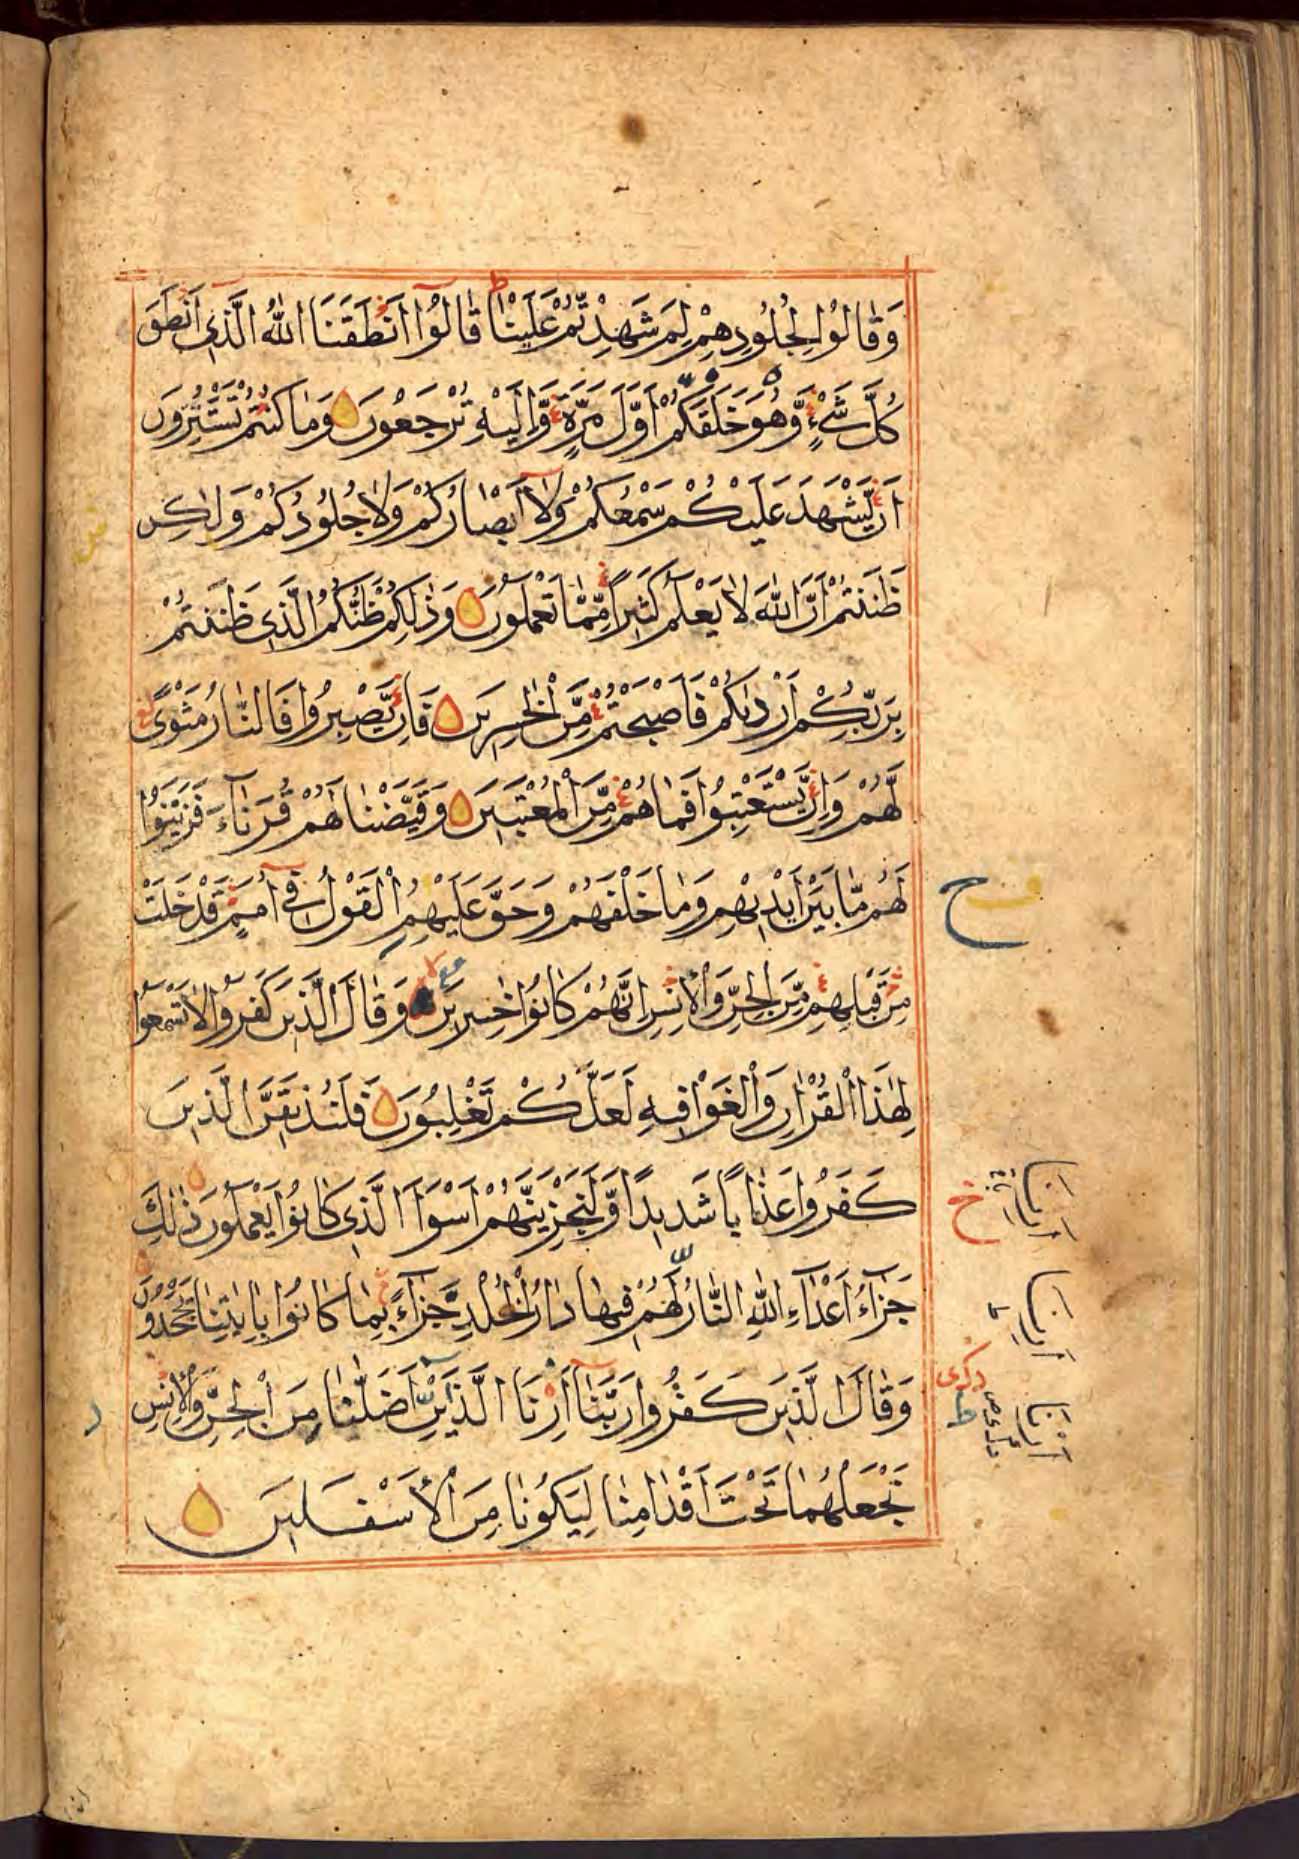 وَقَالُوْا لِجُلُوْدِهِمْ لِمَ شَهِدْتُّمْ عَلَيْنَا قَالُوْا اَنْطَقَنَا اللّٰهُ الَّذِى اَنْطَقَ
كُلَّ شَىْءٍ وَّهُوَ خَلَقَكُمْ اَوَّلَ مَرَّةٍ وَّاِلَيْهِ تُرْجَعُوْنَ وَمَا كُنْتُمْ تَسْتَتِرُوْنَ
اَنْ يَّشْهَدَ عَلَيْكُمْ سَمْعُكُمْ وَلَا اَبْصَارُكُمْ وَلَا جُلُوْدُكُمْ وَلٰكِنْ
ظَنَنْتُمْ اَنَّ اللّٰهَ لَا يَعْلَمُ كَثِيْرًا مِّمَّا تَعْمَلُوْنَ وَذٰلِكُمْ ظَنُّكُمُ الَّذِى ظَنَنْتُمْ
بِرَبِّكُمْ اَرْدٰىكُمْ فَاَصْبَحْتُمْ مِّنَ الْخٰسِرِيْنَ فَاِنْ يَّصْبِرُوْا فَالنَّارُ مَثْوًى
لَّهُمْ وَاِنْ يَّسْتَعْتِبُوْا فَمَا هُمْ مِّنَ الْمُعْتَبِيْنَ وَقَيَّضْنَا لَهُمْ قُرَنَآءَ فَزَيَّنُوْا
لَهُمْ مَّا بَيْنَ اَيْدِيْهِمْ وَمَا خَلْفَهُمْ وَحَقَّ عَلَيْهِمُ الْقَوْلُ فِىْٓ اُمَمٍ قَدْ خَلَتْ
ح
مِنْ قَبْلِهِمْ مِّنَ الْجِنِّ وَالْاِنْسِ اِنَّهُمْ كَانُوْا خٰسِرِيْنَ وَقَالَ الَّذِيْنَ كَفَرُوْا لَا تَسْمَعُوْا
لِهٰذَا الْقُرْاٰنِ وَالْغَوْا فِيْهِ لَعَلَّكُمْ تَغْلِبُوْنَ فَلَنُذِيْقَنَّ الَّذِيْنَ
كَفَرُوْا عَذَابًا شَدِيْدًا وَّلَنَجْزِيَنَّهُمْ اَسْوَاَ الَّذِى كَانُوْا يَعْمَلُوْنَ ذٰلِكَ
خ
جَزَآءُ اَعْدَآءِ اللّٰهِ النَّارُ لَهُمْ فِيْهَا دَارُ الْخُلْدِ جَزَآءً بِمَا كَانُوْا بِاٰيٰتِنَا يَجْحَدُوْنَ
وَقَالَ الَّذِيْنَ كَفَرُوْا رَبَّنَا اَرِنَا الَّذَيْنِ اَضَلّٰنَا مِنَ الْجِنِّ وَالْاِنْسِ
نَجْعَلْهُمَا تَحْتَ اَقْدَامِنَا لِيَكُوْنَا مِنَ الْاَسْفَلِيْنَ